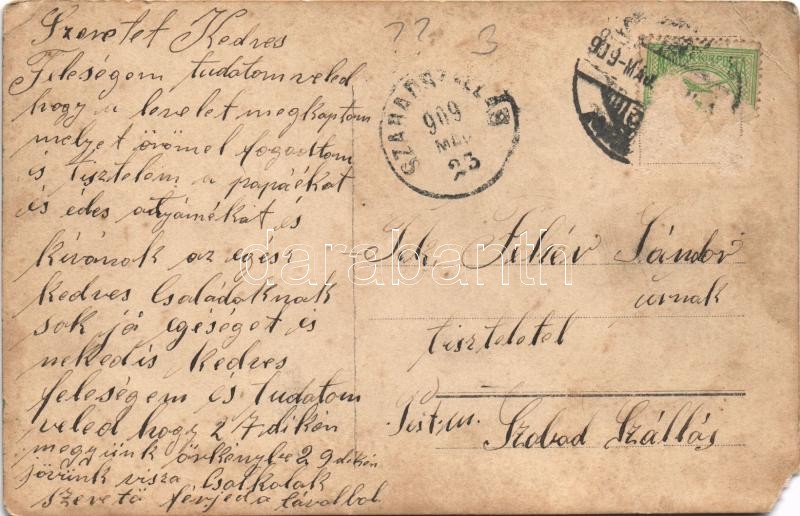 Szeretet Kedves
Feleségem tudatom veled
hogy a levelet megkaptom
melyet örömel fogadtom
is tisztelem a papáékat
és édes anyámékat és
kívánok az egész
kedves Családoknak
sok jó egéséget is
nekedis kedves
feleségem és tudatom
veled hogy 27 dikén
megyünk örkénybe 29 dikén
jövünk visza Csolkolak
szerető férjed a távolbol
?? 3
SZABADSZÁLLÁS
909
23
909-MÁJ
Tek. Fehér Sándor
úrnak
tisztelettel
Pest. m.
Szobad Szállás
darabanth.com